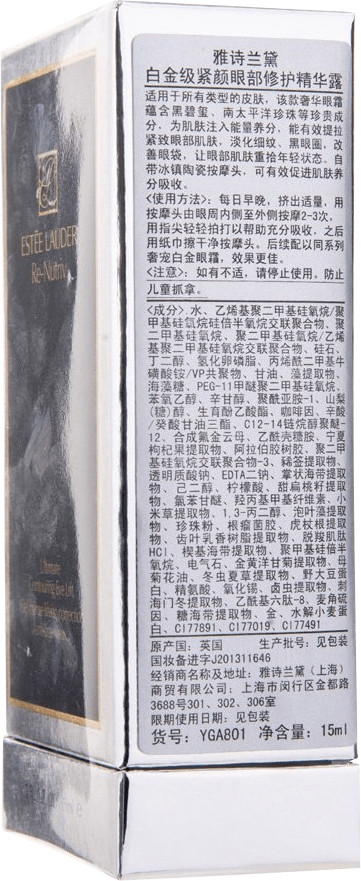 ESTĒE LAUDER
Re-Nutriv
Ultimate
雅诗兰黛
白金级紧颜眼部修护精华露
适用于所有类型的皮肤，该款奢华眼霜
蕴含黑碧玺、南太平洋珍珠等珍贵成
分，为肌肤注入能量养分，能有效提拉
紧致眼部肌肤，淡化细纹、黑眼圈，改
善眼袋，让眼部肌肤重拾年轻状态。自
带冰镇陶瓷按摩头，可有效促进肌肤养
分吸收。
<使用方法>：每日早晚，挤出适量，用
按摩头由眼周内侧至外侧按摩2-3次，
用指尖轻轻拍打以帮助充分吸收，之后
用纸巾擦干净按摩头。后续配以同系列
奢宠白金眼霜，效果更佳。
<注意>：如有不适，请停止使用。防止
儿童抓拿。
<成分>水、乙烯基聚二甲基硅氧烷/聚
甲基硅氧烷硅倍半氧烷交联聚合物、聚
二甲基硅氧烷、聚二甲基硅氧烷/乙烯
基聚二甲基硅氧烷交联聚合物、硅石、
丁二醇、氢化卵磷脂、丙烯酰二甲基牛
磺酸铵/VP共聚物、甘油、藻提取物、
海藻糖、PEG-11甲醚聚二甲基硅氧烷、
苯氧乙醇、辛甘醇、聚酰亚胺-1、山梨
(糖)醇、生育酚乙酸酯、咖啡因、辛酸
/癸酸甘油三酯、C12-14链烷醇聚醚-
12、合成氟金云母、乙酰壳糖胺、宁夏
枸杞果提取物、阿拉伯胶树胶、聚二甲
基硅氧烷交联聚合物-3、豨签提取物、
透明质酸钠、EDTA二钠、掌状海带提取
物、己二醇、柠檬酸、甜扁桃籽提取
物、氯苯甘醚、羟丙基甲基纤维素、小
米草提取物、1,3-丙二醇、泡叶藻提取
物、珍珠粉、根瘤菌胶、虎杖根提取
物、齿叶乳香树脂提取物、脱羧肌肽
HCl、楔基海带提取物、聚甲基硅倍半
氧烷、电气石、金黄洋甘菊提取物、母
菊花油、冬虫夏草提取物、野大豆蛋
白、精氨酸、氧化锡、卤虫提取物、刺
海门冬提取物、乙酰基六肽-8、麦角硫
因、糖海带提取物、金、水解小麦蛋
白、CI77891、CI77019、CI77491
原产国：英国 生产批号：见包装
国妆备进字J201311646
经销商名称及地址：雅诗兰黛（上海）
商贸有限公司：上海市闵行区金都路
3688号301、302、306室
限期使用日期：见包装
货号：YGA801 净含量：15ml